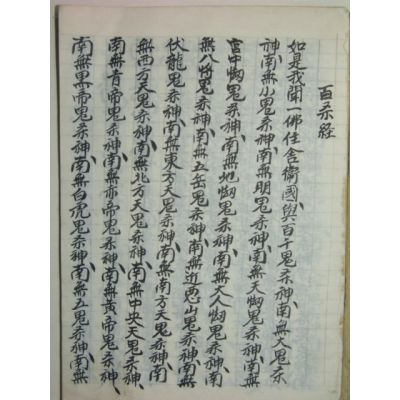 百杀経
如是我聞一佛住舍衛國與百千鬼杀神南無大鬼杀
神南無小鬼杀神南無朋鬼杀神南無天鬼杀神南無
宮中鬼杀神南無地鬼杀神南無大人鬼杀神南
無八將鬼杀神南無五岳鬼杀神南無近惡山鬼杀神南無
伏龍鬼杀神南無東方天鬼杀神南無南方天鬼杀神南
無西方天鬼杀神南無北方天鬼杀神南無中央天鬼杀神
南無青帝鬼杀神南無赤帝鬼杀神南無黃帝鬼杀神
南無黑帝鬼杀神南無白虎鬼杀神南無五鬼杀神南無